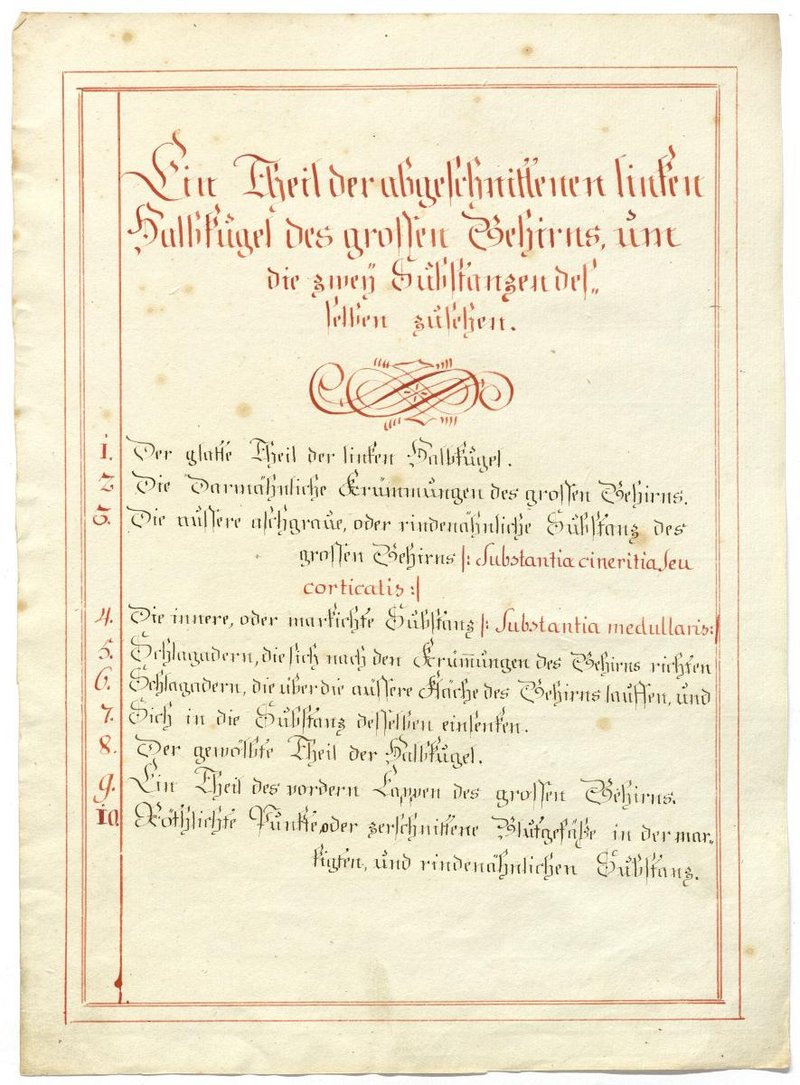 Ein Theil der abgeschnittenen linken
Halbkugel des grossen Gehirns, um
die zweÿ Substanzen des„
selben zusehen.
1. Der glatte Theil der linken Halbkugel.
2 Die Darmähnliche Krümmungen des grossen Gehirns.
3. Die aussere aschgraue, oder rindenähnliche Substanz des
grossen Gehirns |: Substantia cineritia, seu
corticalis :|
4. Die innere, oder markichte Substanz |: Substantia medullaris :|
5. Schlagadern, die sich nach den Krum̄ungen des Gehirns richten
6. Schlagadern, die über die aussere Fläche des Gehirns lauffen, und
7. Sich in die Substanz desselben einsenken.
8. Der gewölbte Theil der Halbkugel.
9. Ein Theil des vordern Lappen des grossen Gehirns.
10 Röthlichte Punkte, oder zerschnittene Blutgefäße in der mar„
kigten, und rindenähnlichen Substanz.